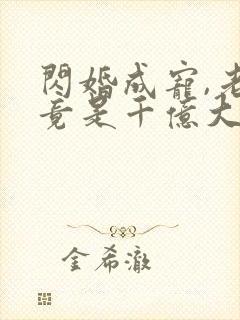 閃婚成寵,老
竟是千億大
金希澈